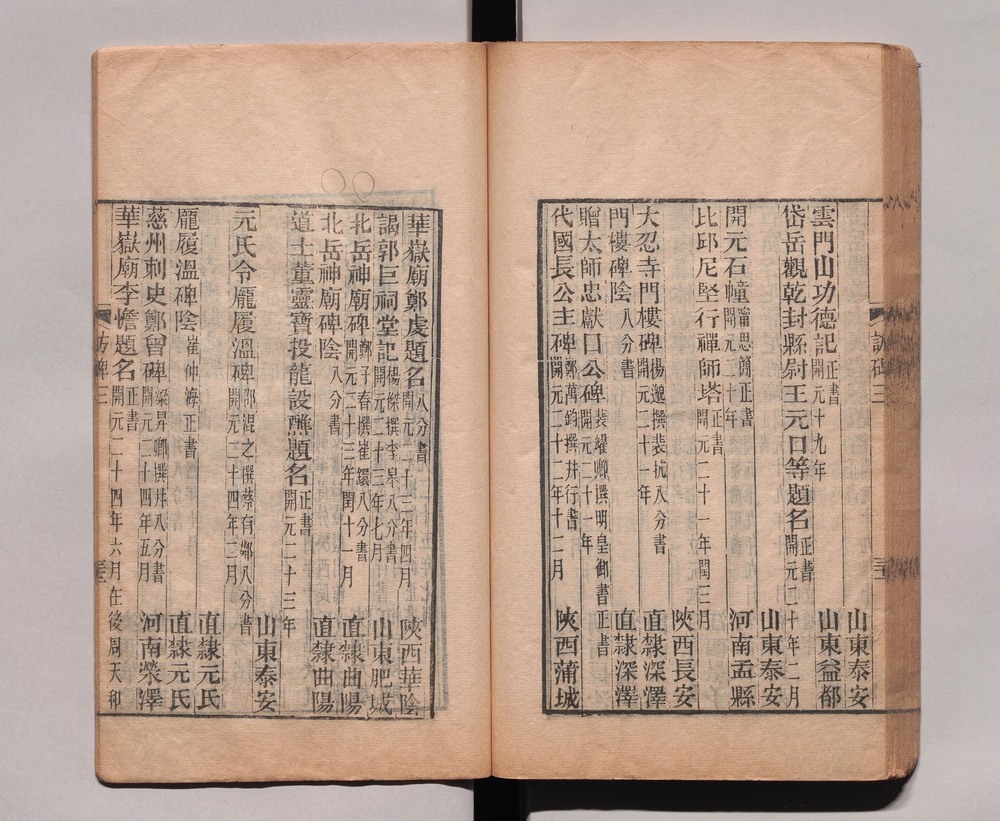 山東泰安
雲門山功德記正書開元十九年 山東益都
岱岳觀乾封縣尉王元口等題名正書開元二十年二月 山東泰安
開元石幢甯思簡正書開元二十年 河南孟縣
比邱尼堅行禪師塔正書開元二十一年閏三月 陝西長安
大忍寺門樓碑楊邈撰裴抗八分書開元二十一年 直隸深澤
門樓碑陰八分書 直隸深澤
贈太師忠獻口公碑裴耀卿撰明皇御書正書開元二十一年
代國長公主碑鄭萬鈞撰幷行書開元二十二年十二月 陝西蒲城
華嶽廟鄭虔題名八分書開元二十二年四月 陝西華陰
謁郭巨祠堂記楊傑撰李皋八分書開元二十三年七月 山東肥城
北岳神廟碑鄭子春撰崔鐶八分書開元二十三年閏十一月 直隸曲陽
北岳神廟碑陰八分書 直隸曲陽
道士董靈寶投龍設醮題名正書開元二十三年 山東泰安
元氏令龐履溫碑邵混之撰蔡有鄰八分書開元二十四年二月 直隸元氏
龐履溫碑陰崔仲海正書 直隸元氏
慈州刺史鄭曾碑梁昇卿撰幷八分書開元二十四年五月 河南滎澤
華嶽廟李憺題名正書開元二十四年六月在後周天和
訪碑三